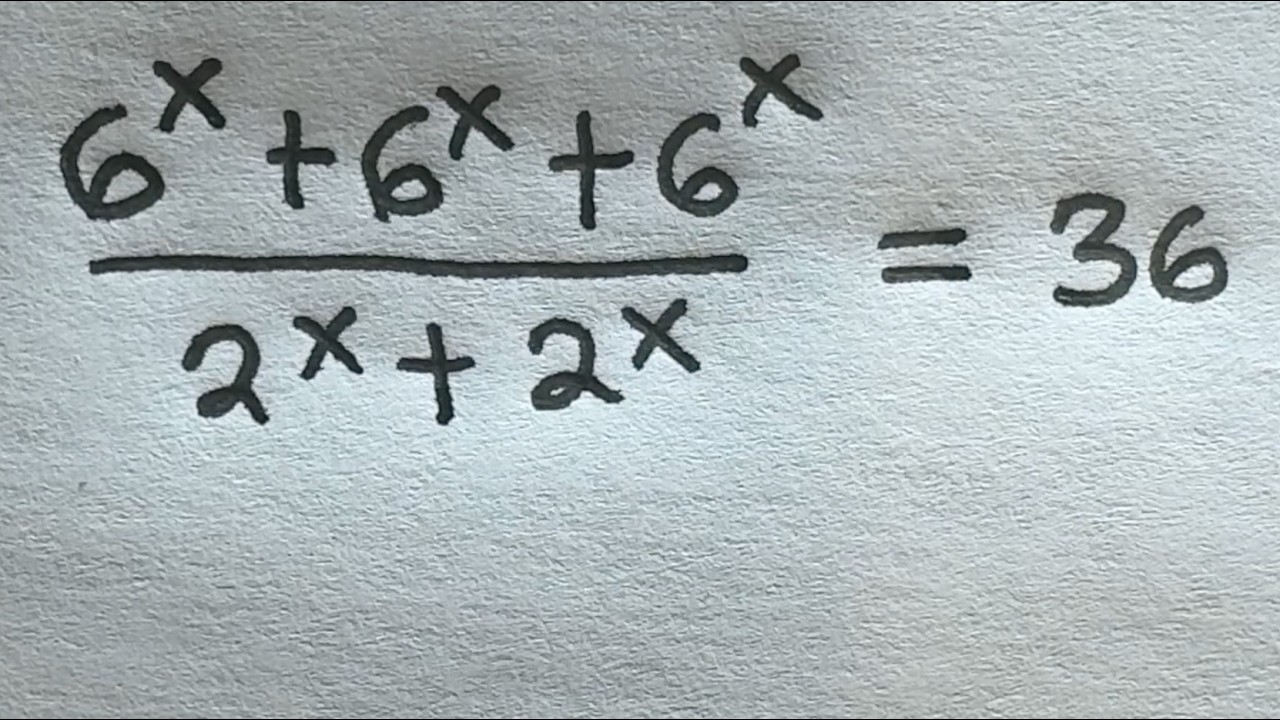 6^x + 6^x + 6^x
2^x + 2^x
= 36